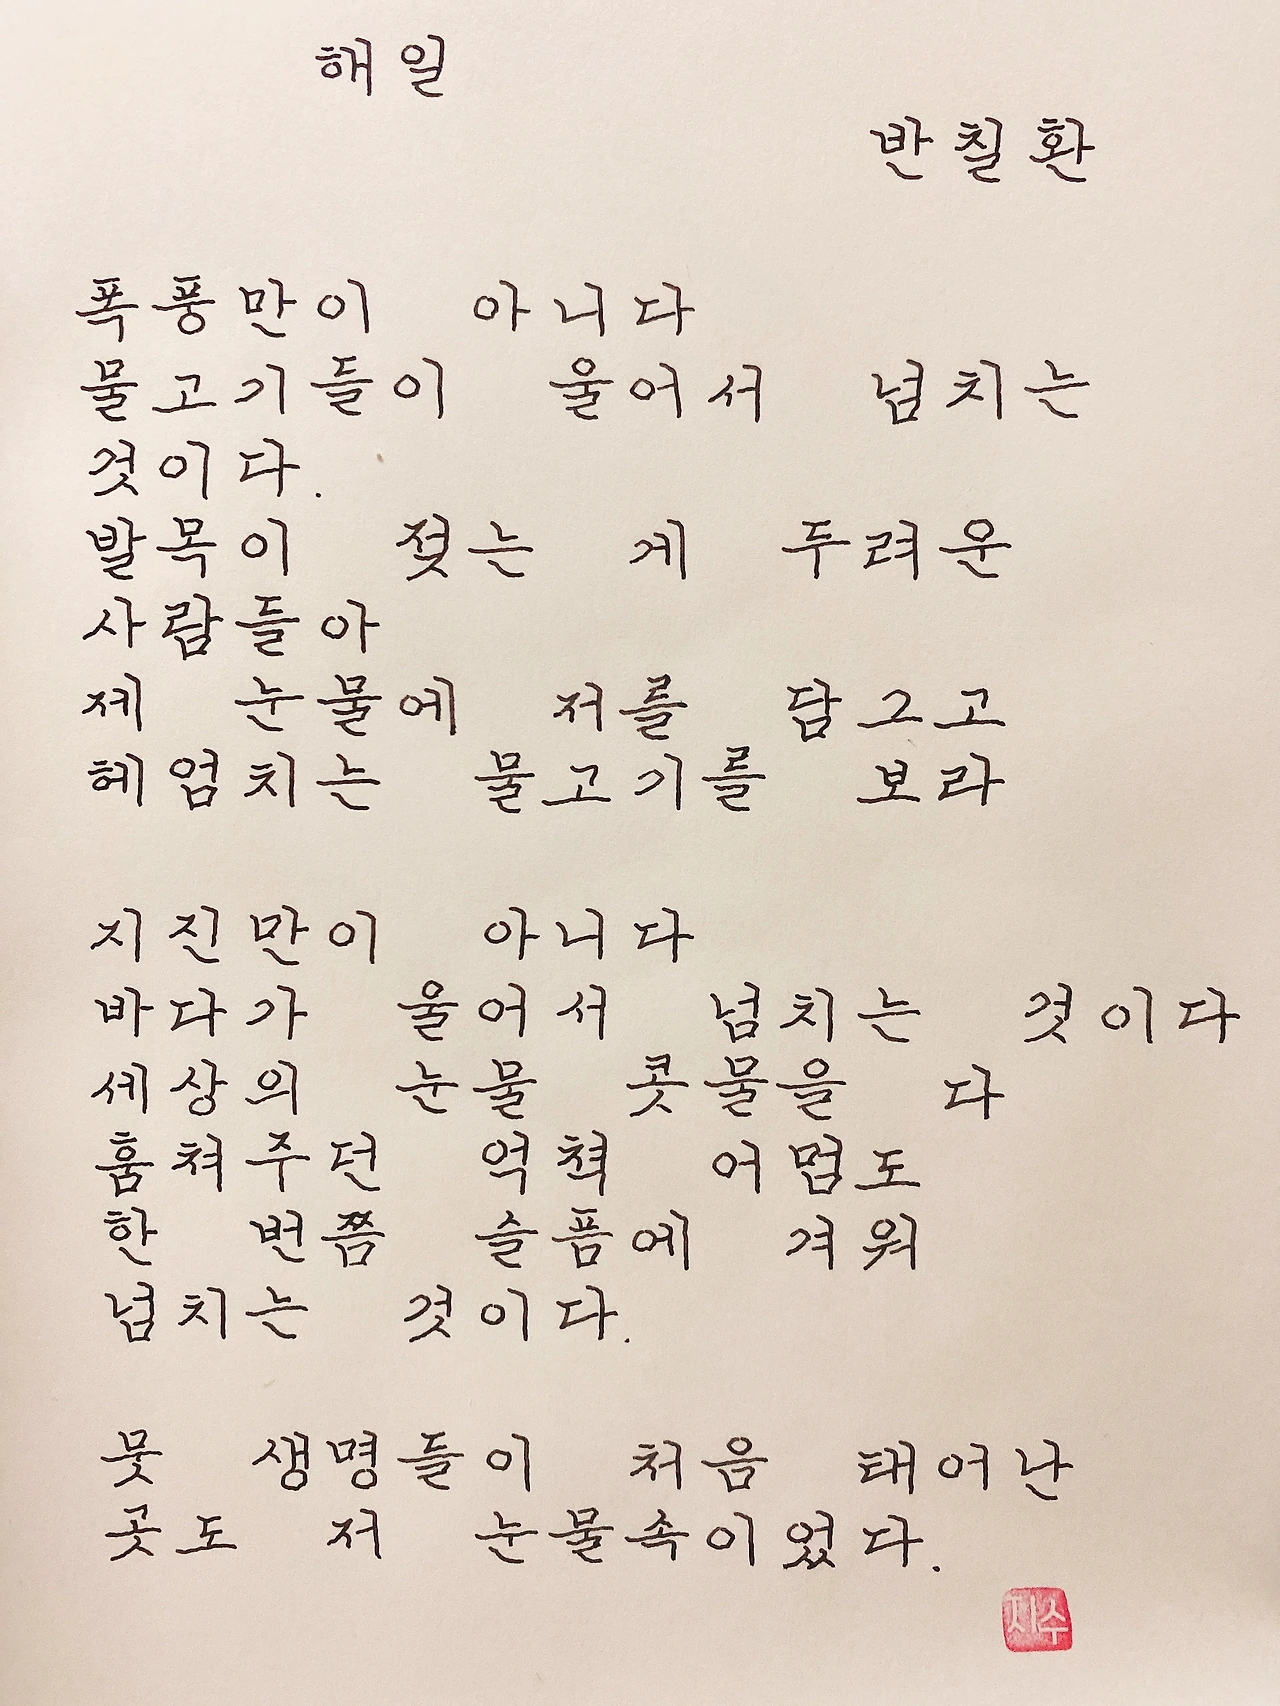 해일
반칠환
폭풍만이 아니다
물고기들이 울어서 넘치는
것이다.
발목이 젖는 게 두려운
사람들아
제 눈물에 저를 담그고
헤엄치는 물고기를 보라
지진만이 아니다
바다가 울어서 넘치는 것이다
세상의 눈물 콧물을 다
훔쳐주던 억척 어멈도
한 번쯤 슬픔에 겨워
넘치는 것이다.
뭇 생명들이 처음 태어난
곳도 저 눈물속이었다.
지수